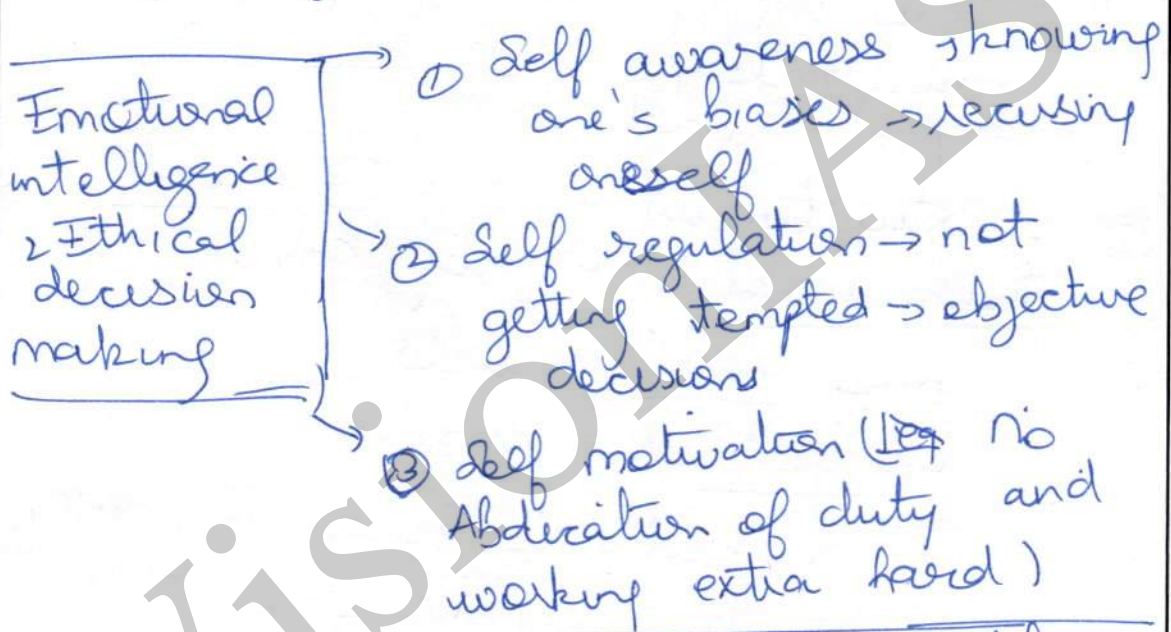 Emotional
intelligence
& Ethical
decision
making
① Self awareness → knowing
one's biases → recusing
oneself
② Self regulation → not
getting tempted → objective
decisions
③ Self motivation ( No
Abdication of duty and
working extra hard)
VisionIAS